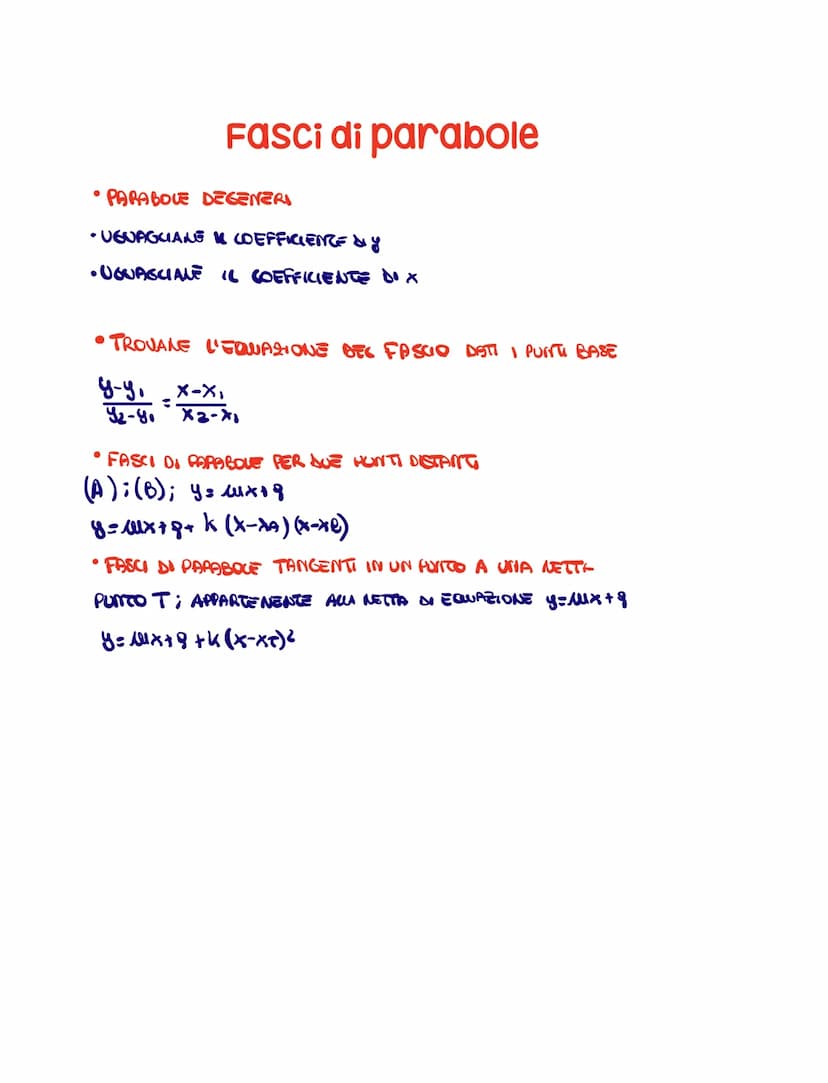 Fasci di parabole
• PARABOLE DEGENERI
• UGUAGLIARE IL COEFFICIENTE DI y
• UGUAGLIARE IL COEFFICIENTE DI x
• TROVARE L'EQUAZIONE DEL FASCIO DATI I PUNTI BASE
y-y₁/y₂-y₁ = x-x₁/x₂-x₁
• FASCI DI PARABOLE PER DUE PUNTI DISTANTI
(A); (B); y = mx+q
y = mx+q+ k (x-xA) (x-xB)
• FASCI DI PARABOLE TANGENTI IN UN PUNTO A UNA RETTA
PUNTO T; APPARTENENTE ALLA RETTA DI EQUAZIONE y=mx+q
y = mx+q +k(x-xT)²